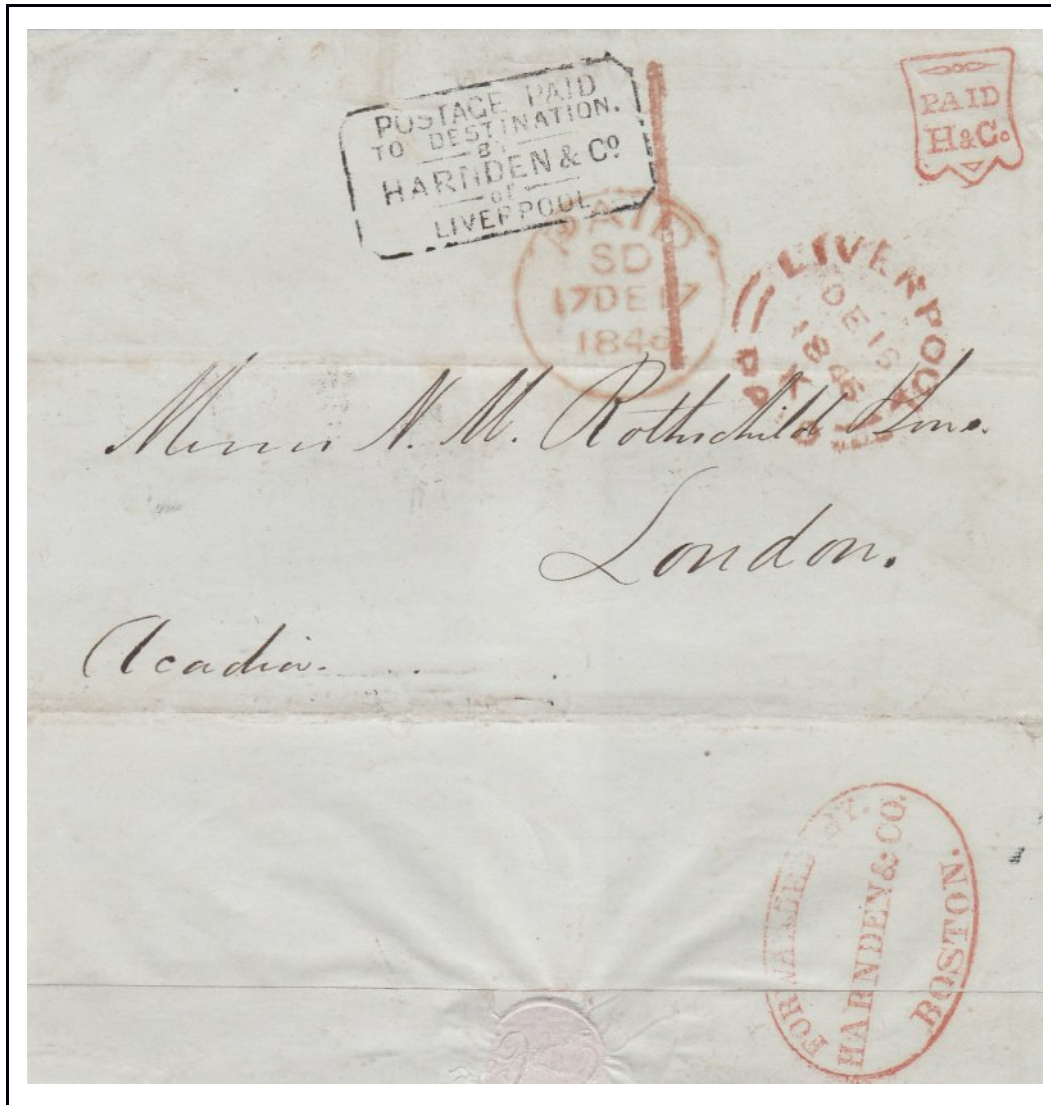 POSTAGE PAID
TO DESTINATION.
BY
HARNDEN & Co
OF
LIVERPOOL
PAID
H&Co.
PAID
SD
17DE17
1846
LIVERPOOL
DE 16
1846
PAID
Messrs N. M. Rothschild & Sons.
London.
Acadia.
FORWARDED BY.
HARNDEN & CO.
BOSTON.